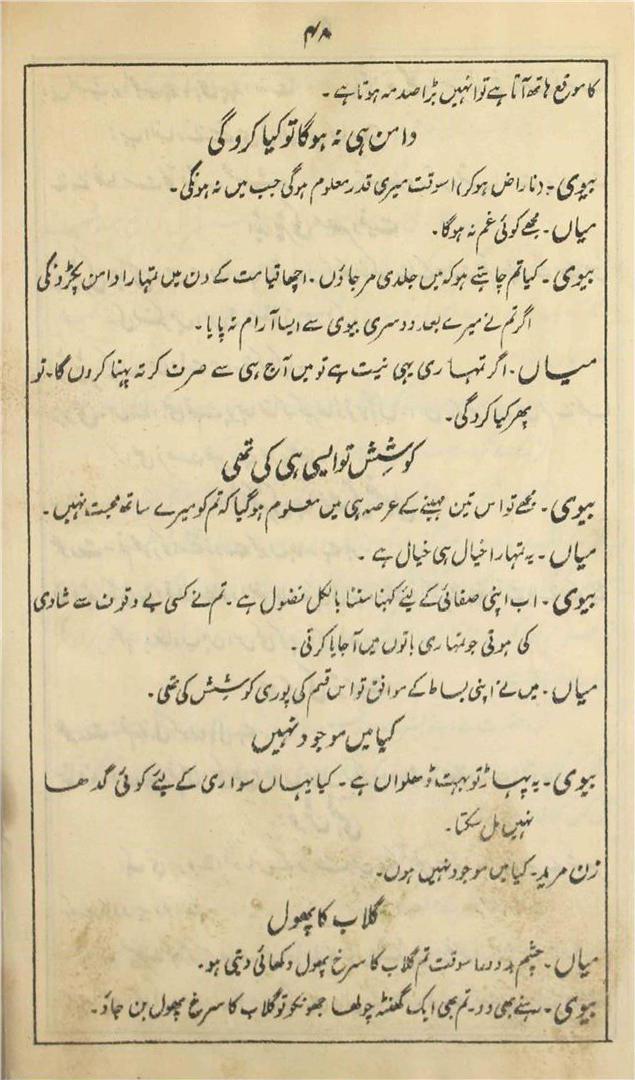 ۴۸
کا موقع ہاتھ آتا ہے تو انہیں بڑا صدمہ ہوتا ہے۔
دامن ہی نہ ہوگا تو کیا کروگی
بیوی۔ (ناراض ہوکر) اسوقت میری قدر معلوم ہوگی جب میں نہ ہونگی۔
میاں۔ مجھے کوئی غم نہ ہوگا۔
بیوی۔ کیا تم چاہتے ہو کہ میں جلدی مرجاؤں۔ اچھا قیامت کے دن میں تمہارا دامن پکڑونگی
اگر تم نے میرے بعد دوسری بیوی سے ایسا آرام نہ پایا۔
میاں۔ اگر تمہاری یہی نیت ہے تو میں آج ہی سے صرف کرتہ پہنا کروں گا۔ تو
پھر کیا کروگی۔
کوشش تو ایسی ہی کی تھی
بیوی۔ مجھے تو اس تین مہینے کے عرصہ ہی میں معلوم ہوگیا کہ تم کو میرے ساتھ محبت نہیں۔
میاں۔ یہ تمہارا خیال ہی خیال ہے۔
بیوی۔ اب اپنی صفائی کے لئے کہنا سننا بالکل فضول ہے۔ تم نے کسی بے وقوف سے شادی
کی ہوتی جو تمہاری باتوں میں آجایا کرتی۔
میاں۔ میں نے اپنی بساط کے موافق تو اس قسم کی پوری کوشش کی تھی۔
کیا میں موجود نہیں
بیوی۔ یہ پہاڑ تو بہت ڈھلواں ہے۔ کیا یہاں سواری کے لئے کوئی گدھا
نہیں مل سکتا۔
زن مرید۔ کیا میں موجود نہیں ہوں۔
گلاب کا پھول
میاں۔ چشم بددور اسوقت تم گلاب کا سرخ پھول دکھائی دیتی ہو۔
بیوی۔ رہنے بھی دو۔ تم بھی ایک گھنٹہ چولھا جھونکو تو گلاب کا سرخ پھول بن جاؤ۔